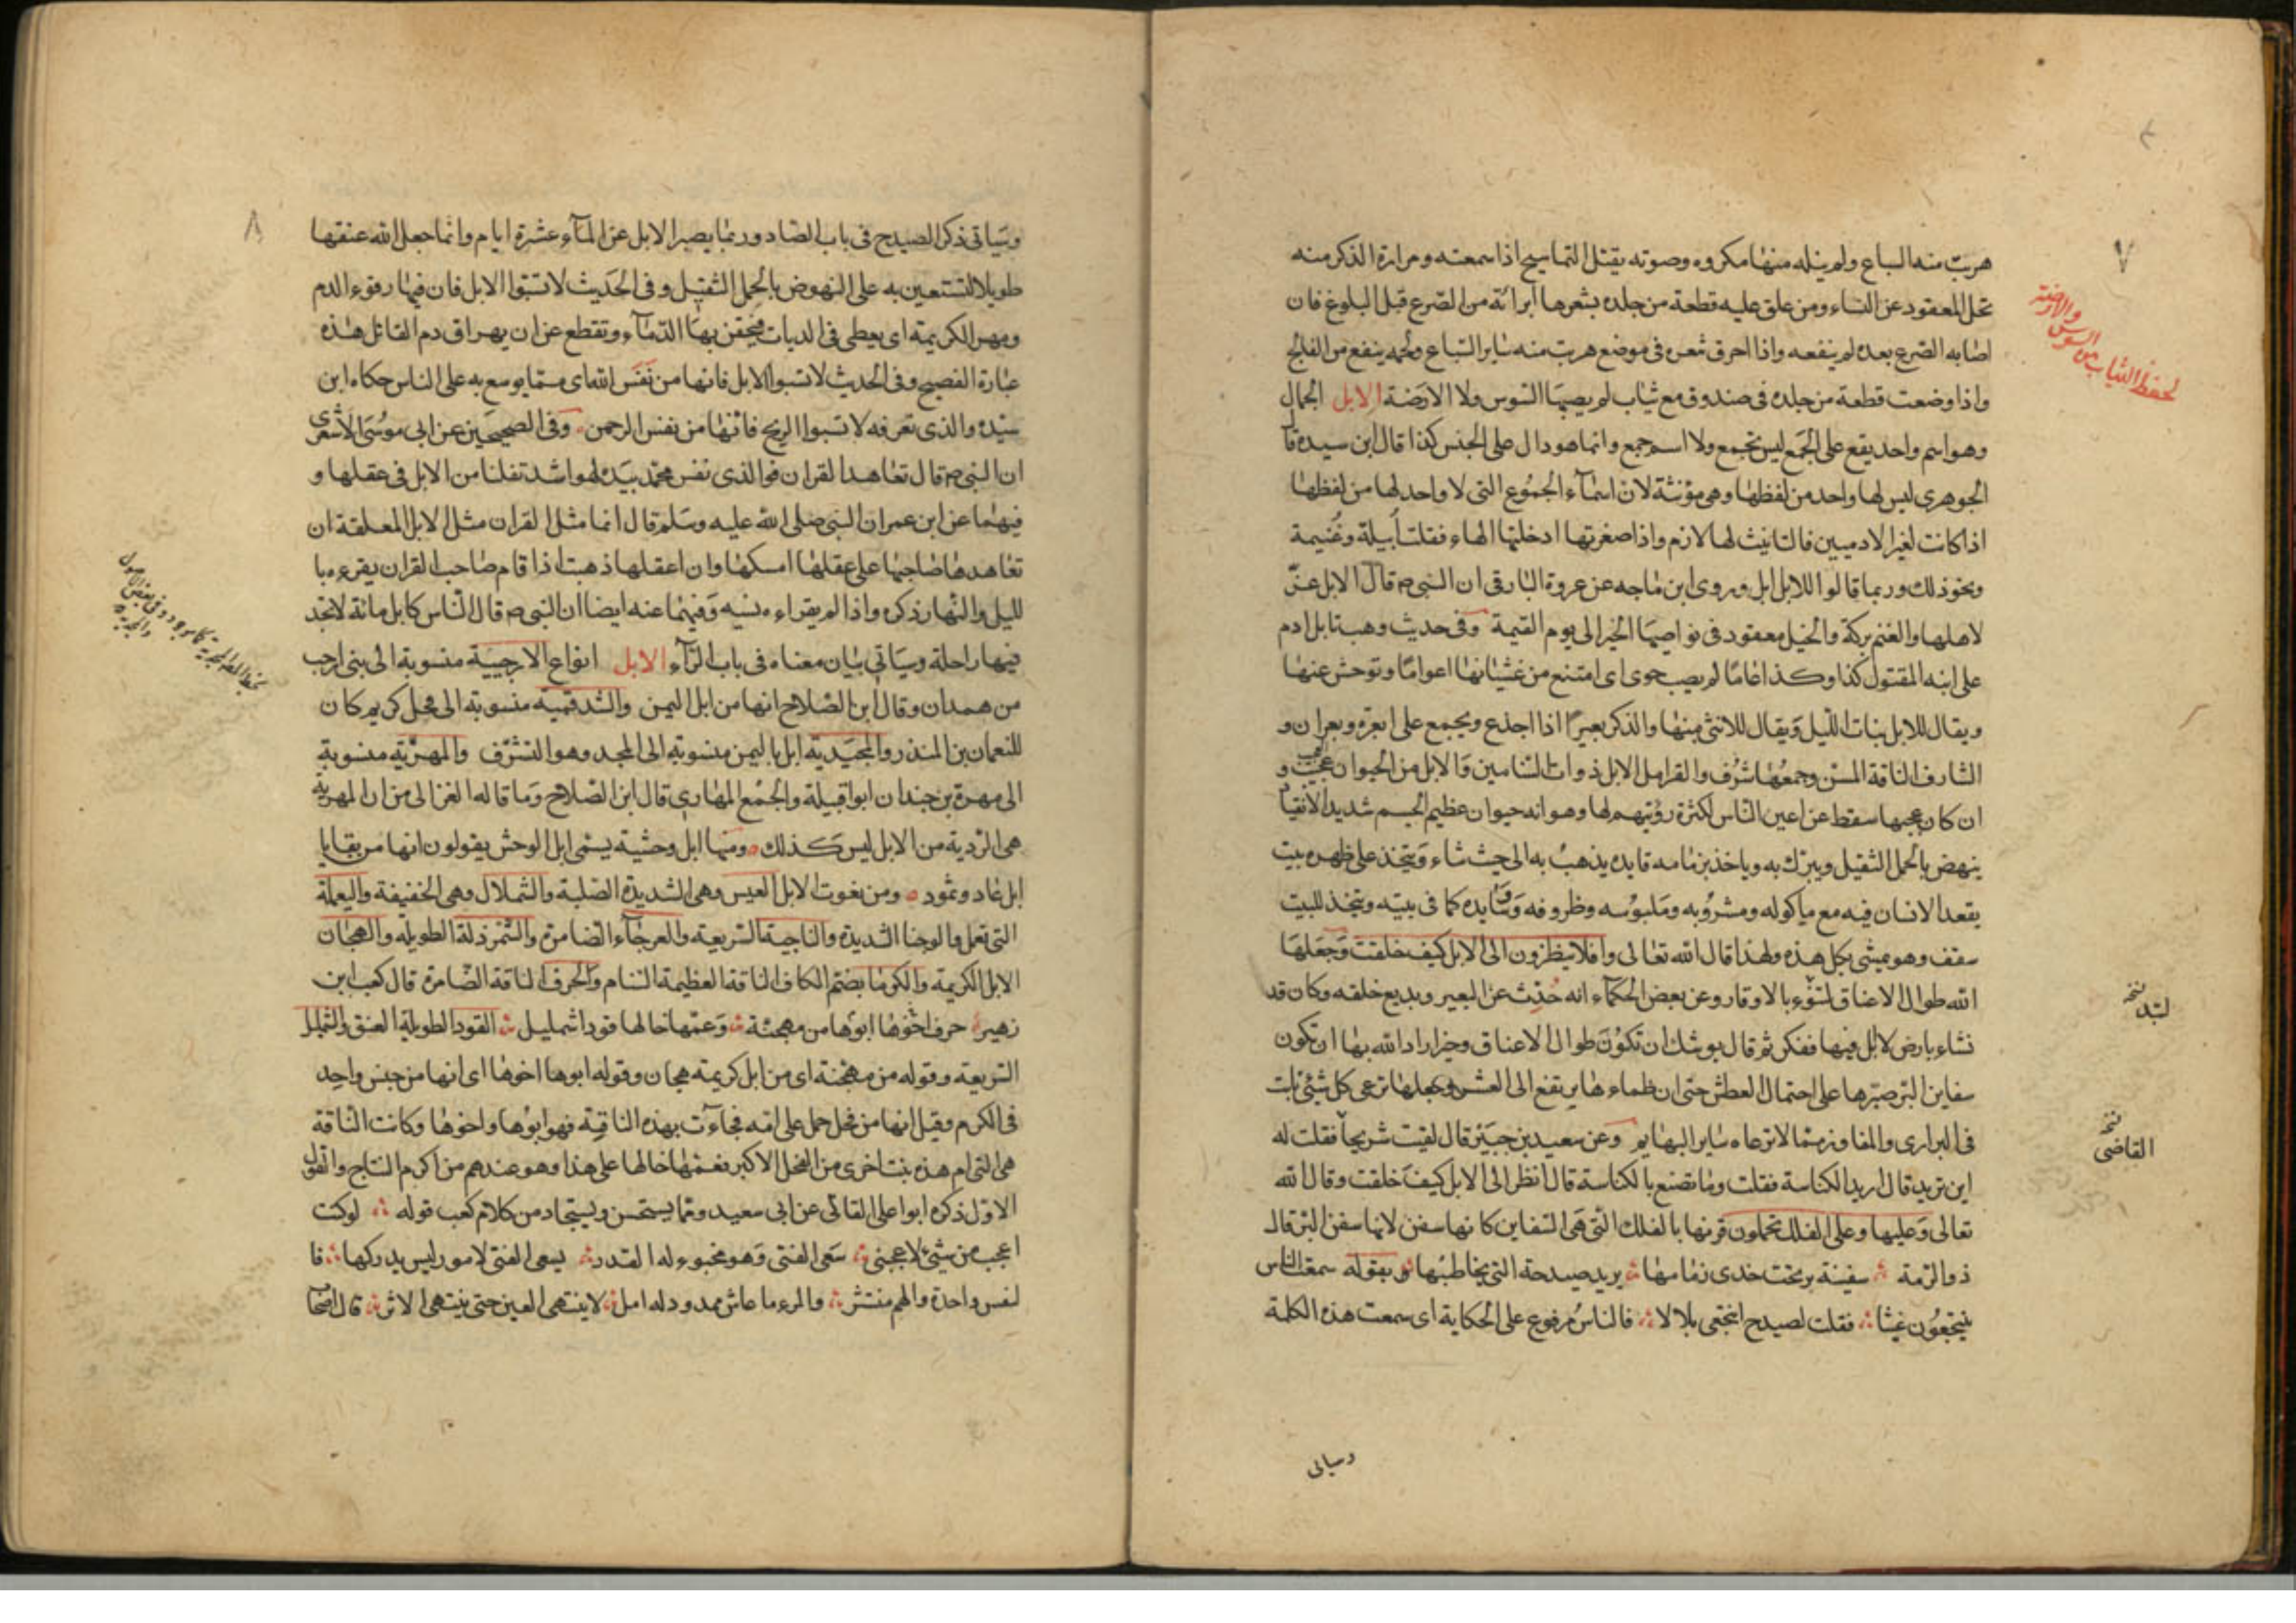 ٧
هربت منه السباع ولم ينله منها مكروه وصوته يقتل التماسيح اذا سمعته ومرارة الذكر منه
تحل المعقود عن النساء ومن علق عليه قطعة من جلده بشعرها ابرأته من الصرع قبل البلوغ فان
اصابه الصرع بعده لم ينفعه واذا احرق شعره فى موضع هربت منه ساير السباع ولحمه ينفع من الفالج
واذا وضعت قطعة من جلده فى صندوق مع ثياب لم يصبها السوس ولا الارضة الابل الجمال
وهو اسم واحد يقع على الجمع ليس بجمع ولا اسم جمع وانما هو دال على الجنس كذا قال ابن سيده قال
الجوهرى ليس لها واحد من لفظها وهى مؤنثة لان اسماء الجموع التى لا واحد لها من لفظها
اذا كانت لغير الادميين فالتانيث لها لازم واذا صغرتها ادخلتها الهاء فقلت أبيلة وغنيمة
ونحو ذلك وربما قالوا للابل ابل وروى ابن ماجه عن عروة البارقى ان النبى م قال الابل عز
لاهلها والغنم بركة والخيل معقود فى نواصيها الخير الى يوم القيمة وفى حديث وهب تابل ادم
على ابنه المقتول كذا وكذا عاما لم يصب حوى اى امتنع من غشيانها اعواما وتوحش عنها
ويقال للابل بنات الليل ويقال للانثى منها والذكر بعيرا اذا اجذع ويجمع على ابعرة وبعران و
الشارف الناقة المسن وجمعها شرف والقرامل الابل ذوات السنامين والابل من الحيوان عجيب و
ان كان عجبها سقط عن اعين الناس لكثرة رؤيتهم لها وهو انه حيوان عظيم الجسم شديد الانقياد
ينهض بالحمل الثقيل ويبرك به وياخذ بزمامه قايده يذهب به الى حيث شاء ويتخذ على ظهره بيت
يقعد الانسان فيه مع ماكوله ومشروبه وملبوسه وظروفه ووسايده كما فى بيته ويتخذ للبيت
سقف وهو يمشى بكل هذه ولهذا قال الله تعالى وافلا ينظرون الى الابل كيف خلقت وجعلها
الله طوال الاعناق لتنوء بالاوقار وعن بعض الحكماء انه حدث عن البعير وبديع خلقه وكان قد
نشاء بارض لا ابل فيها ففكر ثم قال يوشك ان تكون طوال الاعناق وحيز اراد الله بها ان تكون
سفاين البر صبرها على احتمال العطش حتى ان ظماء ها يرتفع الى العشر وجعلها ترعى كل شئ نابت
فى البرارى والمفاوز مما لا ترعاه ساير البهايم وعن سعيد بن جبير قال لقيت شريحا فقلت له
اين تريد قال اريد الكناسة فقلت وما تصنع بالكناسة قال انظر الى الابل كيف خلقت وقال الله
تعالى وعليها وعلى الفلك تحملون قرنها بالفلك التى هى السفاين كانها سفن لانها سفن البر قال
ذو الرمة سفينة بر تحت خدى زمامها يريد صيدحة التى يخاطبها بقوله سمعت الناس
ينتجعون غيثا فقلت لصيدح انتجعى بلالا فالناس مرفوع على الحكاية اى سمعت هذه الكلمة
وسياتى
لحفظ الثياب من السوس والارضة
نخ
نخ
القاضى
٨
وسياتى ذكر الصيدح فى باب الصاد وربما يصبر الابل عن الماء عشرة ايام وانما جعل الله عنقها
طويلا لتستعين به على النهوض بالحمل الثقيل وفى الحديث لا تسبوا الابل فان فيها رقوء الدم
ومهر الكريمة اى يعطى فى الديات فيحقن بها الدماء وتقطع عن ان يهراق دم القاتل هذه
عبارة الفصيح وفى الحديث لا تسبوا الابل فانها من نفس الله اى مما يوسع به على الناس حكاه ابن
سيده والذى تعرفه لا تسبوا الريح فانها من نفس الرحمن وفى الصحيحين عن ابى موسى الاشعرى
ان النبى م قال تعاهدوا القران فوالذى نفس محمد بيده لهو اشد تفلتا من الابل فى عقلها و
فيهما عن ابن عمر ان النبى صلى الله عليه وسلم قال انما مثل القران مثل الابل المعلقة ان
تعاهدها صاحبها على عقلها امسكها وان اعقلها ذهبت اذا قام صاحب القران يقرءه با
لليل والنهار ذكره واذا لم يقراءه نسيه وفيهما عنه ايضا ان النبى م قال الناس كابل مائة لا تجد
فيها راحلة وسياتى بيان معناه فى باب الراء الابل انواع الارحبية منسوبة الى بنى ارحب
من همدان وقال ابن الصلاح انها من ابل اليمن والشدقمية منسوبة الى فحل كريم كان
للنعمان بن المنذر والمجيدية ابل باليمن منسوبة الى المجد وهو الشرف والمهرية منسوبة
الى مهرة بن حيدان ابو قبيلة والجمع المهارى قال ابن الصلاح وما قاله الغزالى من ان المهرية
هى الردية من الابل ليس كذلك ومنها ابل وحشية يسمى ابل الوحش يقولون انها من بقايا
ابل عاد وثمود ومن نعوت الابل العيس وهى الشديدة الصلبة والشملال وهى الخفيفة واليعملة
التى تعمل والوجنا الشديدة والناجية السريعة والعرجاء الضامرة والشمرذلة الطويلة والهجان
الابل الكريمة والكوما بضم الكاف الناقة العظيمة السنام والحرف الناقة الضامرة قال كعب ابن
زهير حرف اخوها ابوها من مهجنة وعمها خالها قودا شمليل القودا الطويلة العنق والشمليل
السريعة وقوله من مهجنة اى من ابل كريمة هجان وقوله ابوها اخوها اى انها من جنس واحد
فى الكرم وقيل انها من فحل حمل على امه فجاءت بهذه الناقة فهو ابوها واخوها وكانت الناقة
هى التى ام هذه بنت اخرى من الفحل الاكبر فعمها خالها على هذا وهو عندهم من اكرم النتاج والقول
الاول ذكره ابوا على القالى عن ابى سعيد ومما يستحسن ويستجاد من كلام كعب قوله لو كنت
اعجب من شئ لاعجبنى سعى الفتى وهو مخبوء له القدر يسعى الفتى لامور ليس يدركها فا
لنفس واحدة والهم منتشر والمرء ما عاش ممدود له امل لا ينتهى العين حتى ينتهى الاثر قال